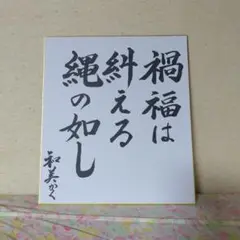 禍福は
糾える
縄の如し
和美かく